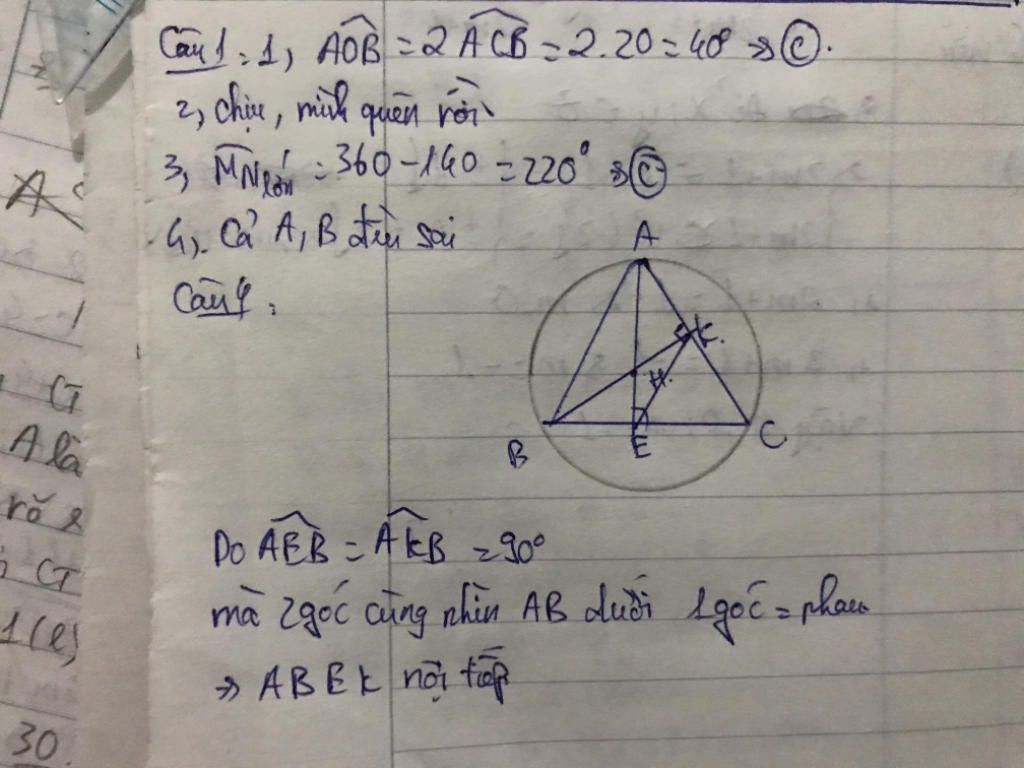 Câu 1: 1, AOB = 2 ACB = 2.20 = 40° => C.
2, chịu, mình quên rồi
3, MN lớn = 360 - 140 = 220° => C
4, Cả A, B đều sai
Câu 4:
A
K
H
B
E
C
Do AEB = AKB = 90°
mà 2 góc cùng nhìn AB dưới 1 góc = nhau
=> ABEK nội tiếp
CT
A là
rõ
CT
1(l)
30